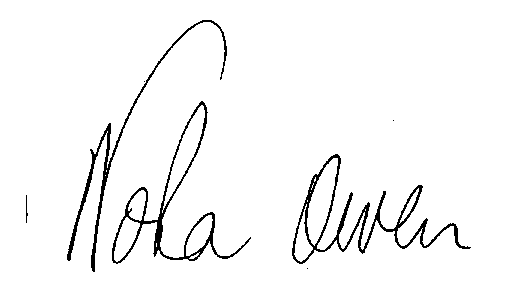 Nora Owen